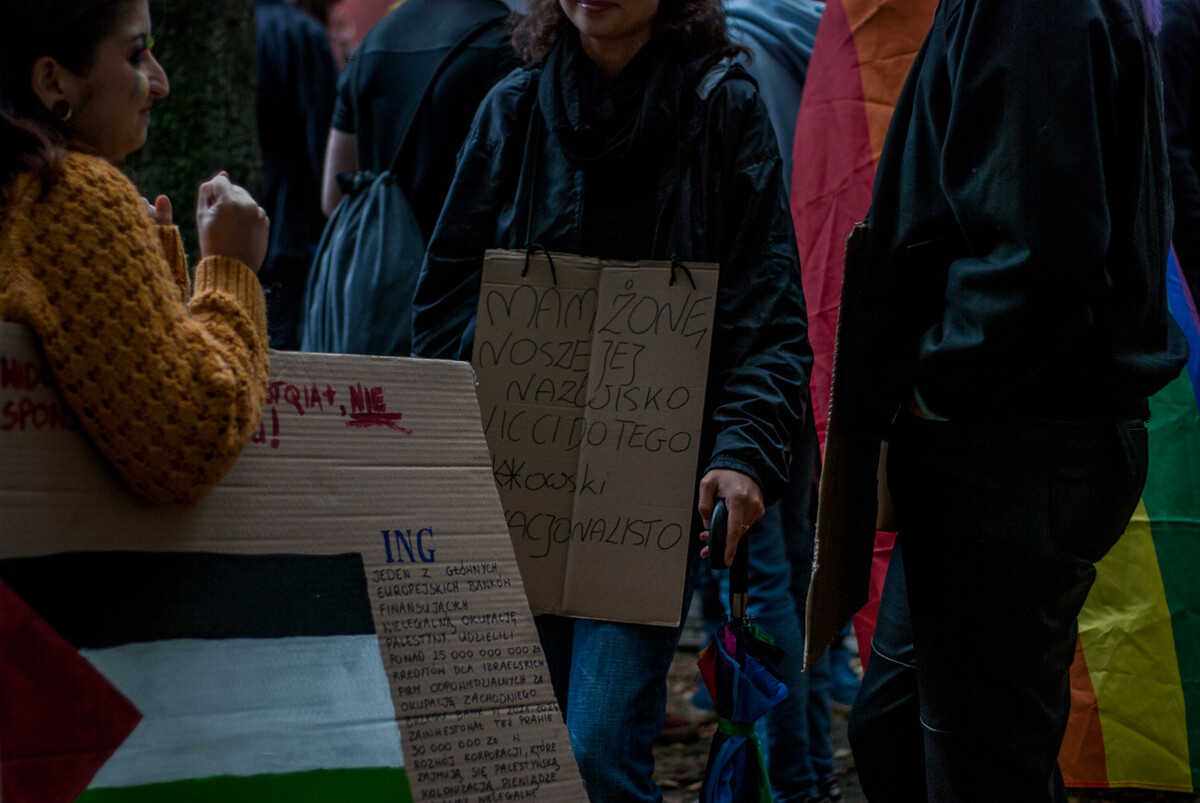 STQIA+, NIE
SPON
ING
JEDEN Z GŁÓWNYCH
EUROPEJSKICH BANKÓW
FINANSUJĄCYCH
NIELEGALNĄ OKUPACJĘ
PALESTYNY. UDZIELILI
PONAD 25 000 000 000 ZŁ
KREDYTÓW DLA IZRAELSKICH
FIRM ODPOWIEDZIALNYCH ZA
OKUPACJĘ ZACHODNIEGO
BRZEGU
ZAINWESTOWAŁ TEŻ PRAWIE
30 000 000 ZŁ W
ROZWÓJ KORPORACJI, KTÓRE
ZAJMUJĄ SIĘ PALESTYŃSKĄ
KOLONIZACJĄ PIENIĄDZE
NIELEGALNE
MAM ŻONĘ,
NOSZE JEJ
NAZWISKO
NIC CI DO TEGO
owski
NACJONALISTO